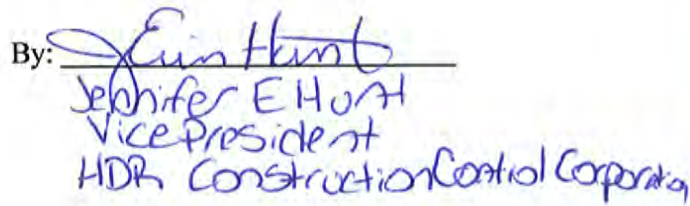 By: J Erin Hunt
Jennifer E Hunt
Vice President
HDR Construction Control Corporation